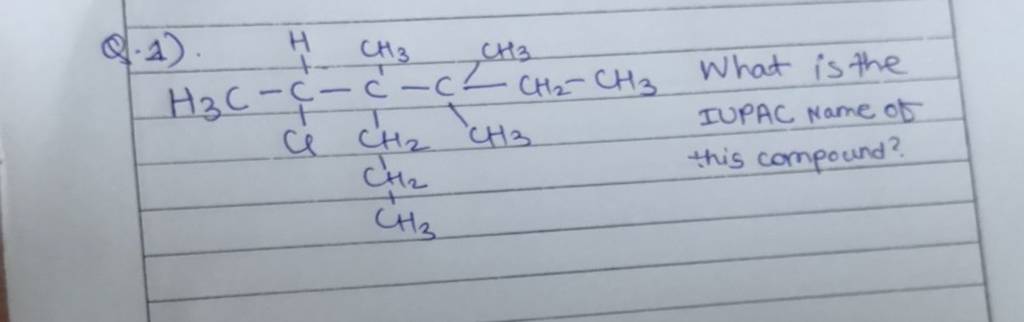 Q.1).
H CH3 CH3
H3C - C - C - C - CH2 - CH3 What is the
Cl CH2 CH3 IUPAC Name of
CH2 this compound?
CH3